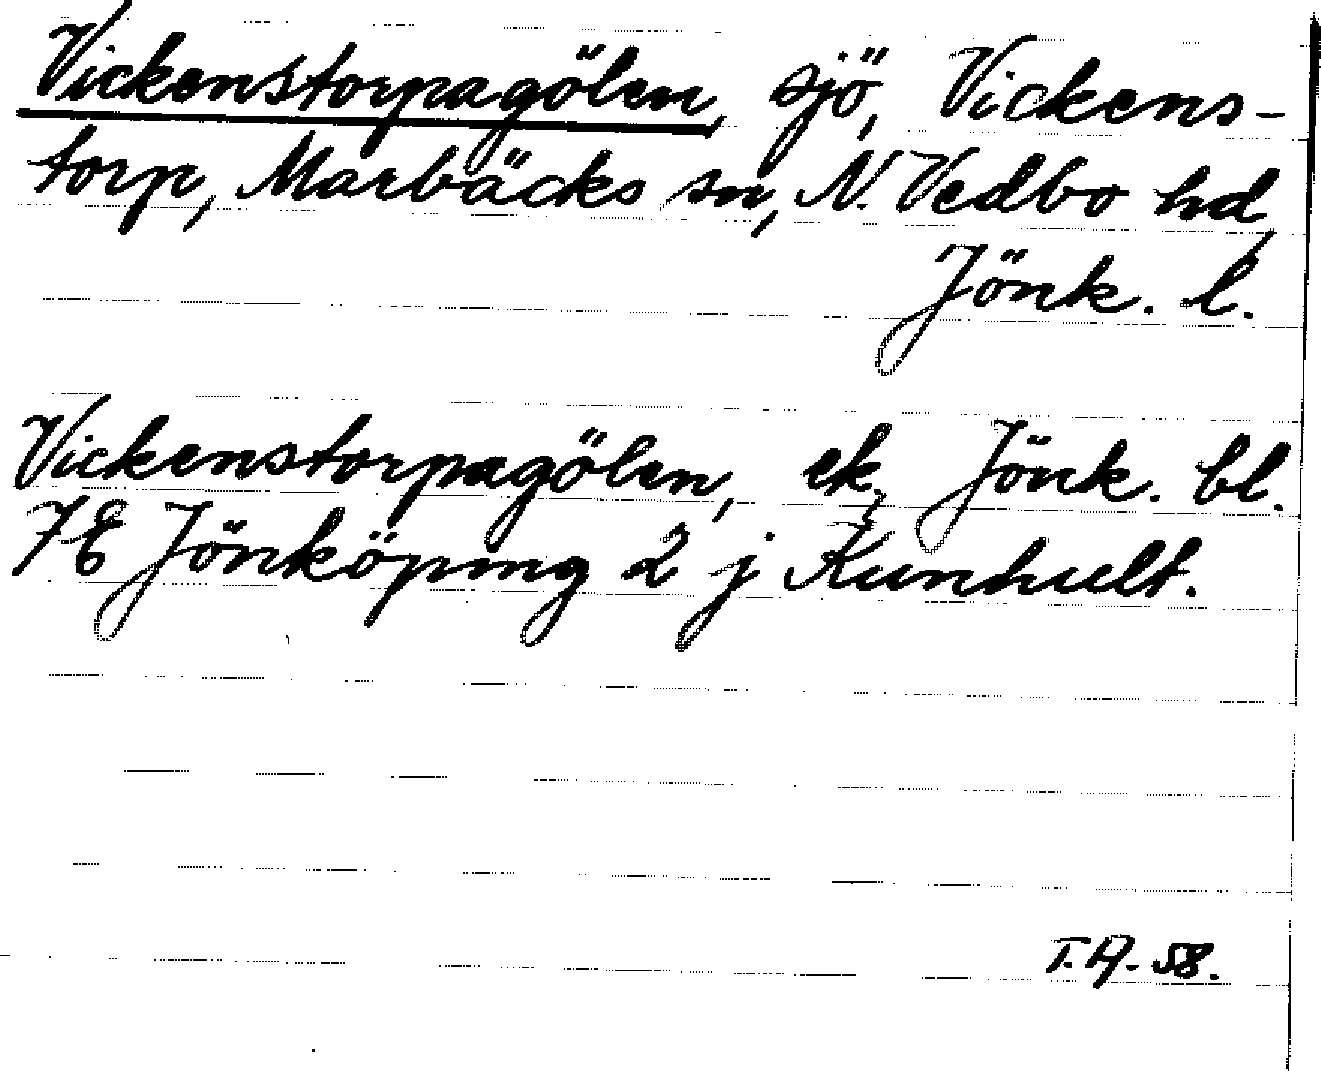 Vickenstorpagölen, sjö, Vickens-
torp, Marbäcks sn, N. Vedbo hd,
Jönk. l.
Vickenstorpagölen, ek, Jönk. bl.
7E Jönköping 2 j Kunhult.
T.A. 58.